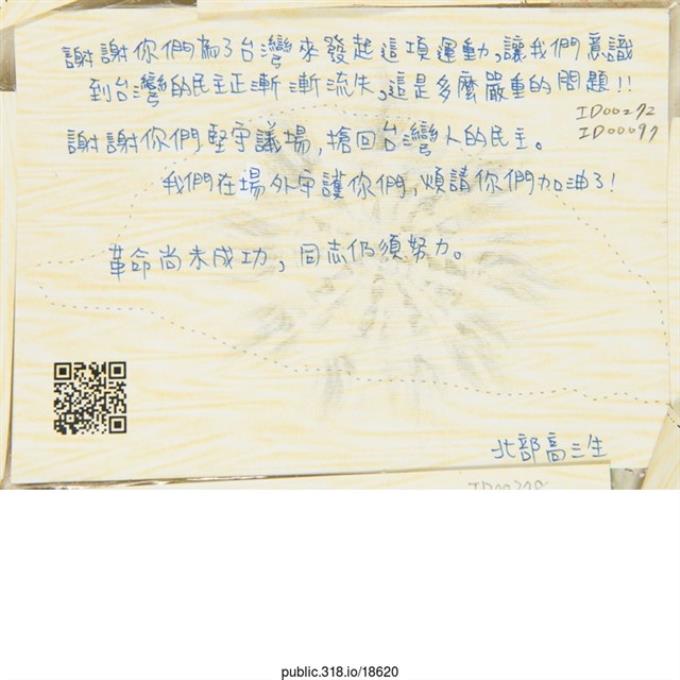 謝謝你們為了台灣來發起這項運動，讓我們意識
到台灣的民主正漸漸流失，這是多麼嚴重的問題！！
ID00272
ID00097
謝謝你們堅守議場，搶回台灣人的民主。
我們在場外守護你們，煩請你們加油了！
革命尚未成功，同志仍須努力。
北部高三生
public.318.io/18620